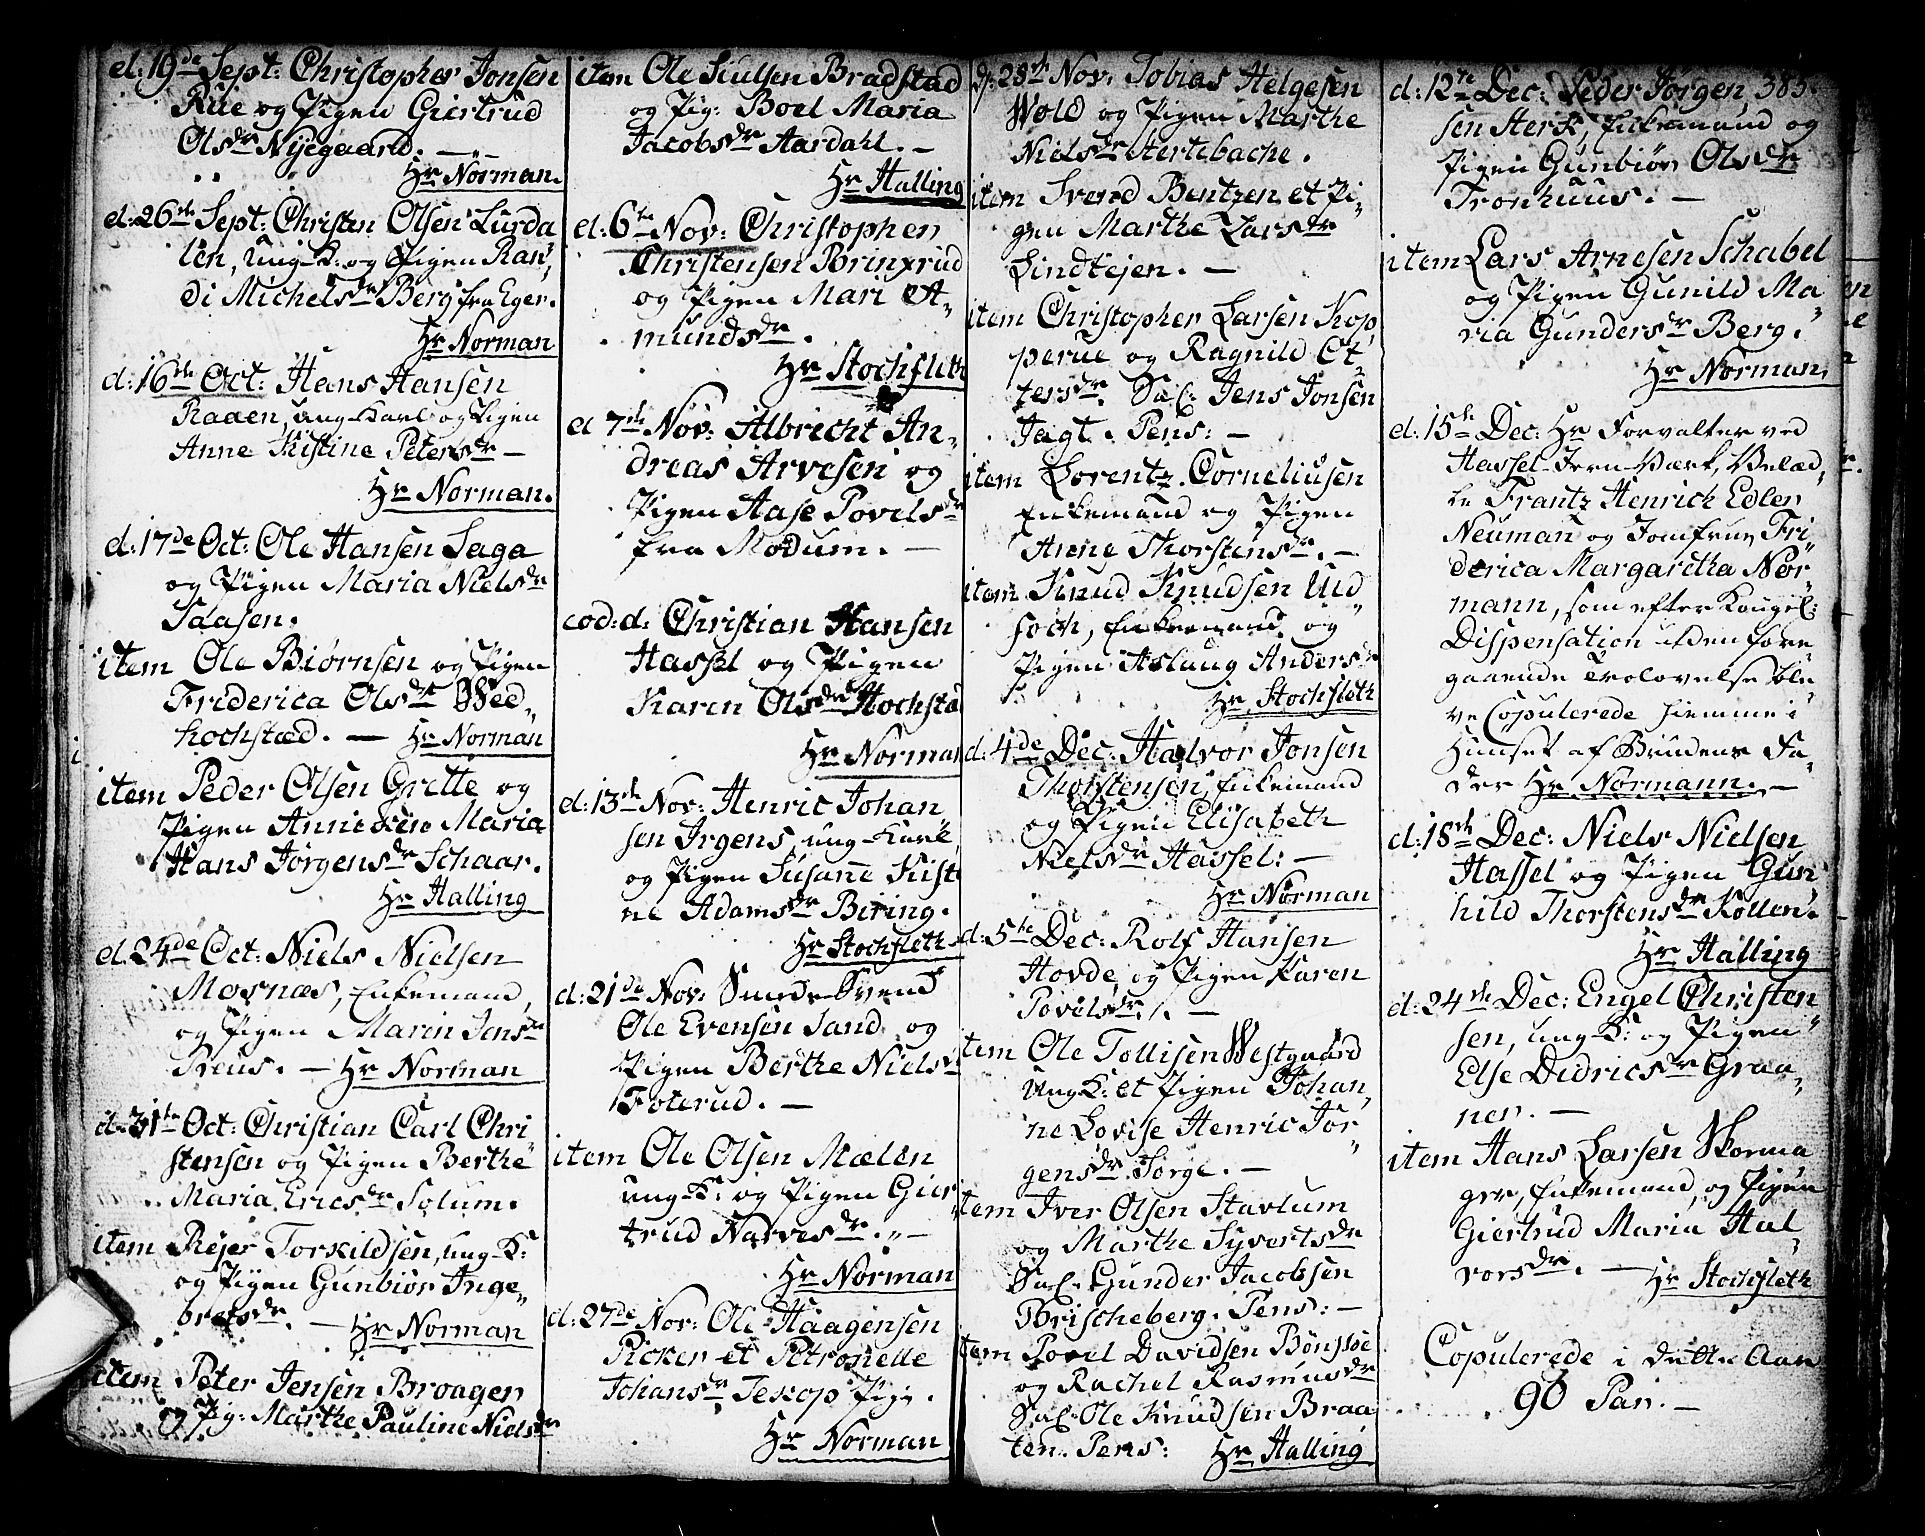 d: 19de Sept: Christopher Jonsen
Rue og Pigen Giertrud
Olsdr Nyegaard. —
Hr Norman.
d: 26de Sept: Christan Olsen Lurda
len, Ung-K: og Pigen Ran,
di Michelsdr Berg fra Eger.
Hr Norman
d: 16de Oct: Hans Hansen
Raaen, ung-Karl og Pigen
Anne Kistine Petersdr —
Hr Norman.
d: 17de Oct: Ole Hansen Saga
og Pigen Maria Nielsdr
Idaasen.
item Ole Biørnsen og Pigen
Friderica Olsdr Wed„
hochstæd. — Hr Norman
item Peder Olsen Gritte og
Pigen Anniken Maria
Hans Jørgensdr Schaar.
Hr Halling
d. 24de Oct: Niels Nielsen
Mosnæs, Enkemand,
og Pigen Marin Jensdr
Reus. — Hr Norman
d. 31te Oct: Christian Carl Chri„
stensen og Pigen Berthe
Maria Ericsdr Solum.
item Rejer Torkildsen, ung-K:
og Pigen Gunbiør Inge„
bretsdr. — Hr Norman
item Peter Jensen Broagen
og Pig: Marthe Pauline Nielsdr
item Ole Siulsen Bradstad
og Pig: Boel Maria
Jacobsdr Aardahl. —
Hr Halling
d: 6te Nov: Christopher
Christensen Brinxrud
og Pigen Mari A„
mundsdr.
Hr Stochfleth
d 7de Nov: Albricht An„
dreas Arvesen og
Pigen Aase Povelsdr
fra Modum. —
eod: d: Christian Hansen
Hassel og Pigen
Karen Olsdr Hochstæd
Hr Norman
d: 13de Nov: Henric Johan„
sen Irgens, ung-Karl
og Pigen Susanne Kisti
ne Adamsdr Biring.
Hr Stochfleth
d: 21de Nov: Smede Svend
Ole Evensen Sand og
Pigen Berthe Nielsdr
Foterud. —
item Ole Olsen Mælen
ung-K: og Pigen Gier
trud Narvesdr. —
Hr Norman
d: 27de Nov: Ole Haagensen
Picker et Petronelle
Johansdr Jeskop Pige.
Hr Norman
d: 28de Nov: Tobias Helgesen
Wold og Pigen Marthe
Nielsdr Stertebache.
item Svend Bentzen et Pi„
gen Marthe Larsdr
Lindtejen. —
item Christopher Larsen Kop
perue og Ragnild Ot„
tersdr. Sal. Jens Jonsen
Jagt. Pens: —
item Lorentz Corneliusen
Enkemand og Pigen
Anne Thorstensdr. —
item Knud Knudsen Uld„
soch, Enkemand og
Pigen Aslaug Andersdr
Hr Stochfleth
d: 4de Dec: Halvor Jonsen
Thorstensen, Enkemand
og Pigen Elisabeth
Nielsdr Hassel: —
Hr Norman
d: 5te Dec: Rolf Hansen
Hovde og Pigen Karen
Povelsdr. —
item Ole Tollisen Westgaard
Ung K: et Pigen Johan„
ne Lovise Henric Jør„
gensdr Sørge. —
item Iver Olsen Stavlum
og Marthe Syvertsdr
Sal. Gunder Jacobsen
Brischeberg. Pens: —
item Povel Davidsen Bønssøe
og Rachel Rasmusdr
Sal. Ole Knudsen Braa
ten. Pens: Hr Halling
385.
d: 12te Dec: Peder Jørgen„
sen Sterk, Enkemand og
Pigen Gunbiør Olsdr
Tronhuus. —
item Lars Arnesen Schabel
og Pigen Gunild Ma„
ria Gundersdr Berg.
Hr Norman.
d: 15de Dec: Hr Forvalter ved
Hassel-Jern-Værk, Velæd„
le Frantz Henrich Edler
Neuman og Jomfrue Fri„
derica Margaretha Nor„
mann, som efter Kongel:
Dispensation uden fore„
gaaende Trolovelse ble„
ve Copulerede hiemme i
Huuset af Brudens Fa„
der Hr Normann. —
d: 18de Dec: Niels Nielsen
Hassel og Pigen Gun
hild Thorstensdr Kollen.
Hr Halling
d: 24de Dec: Engel Christen
sen, ung-K: og Pigen
Else Didricsdr Graa„
ner. —
item Hans Larsen Skorma
ger, Enkemand, og Pigen
Giertrud Maria Hal„
vorsdr. — Hr Stochfleth
Copulerede i dette Aar
90 Par. —